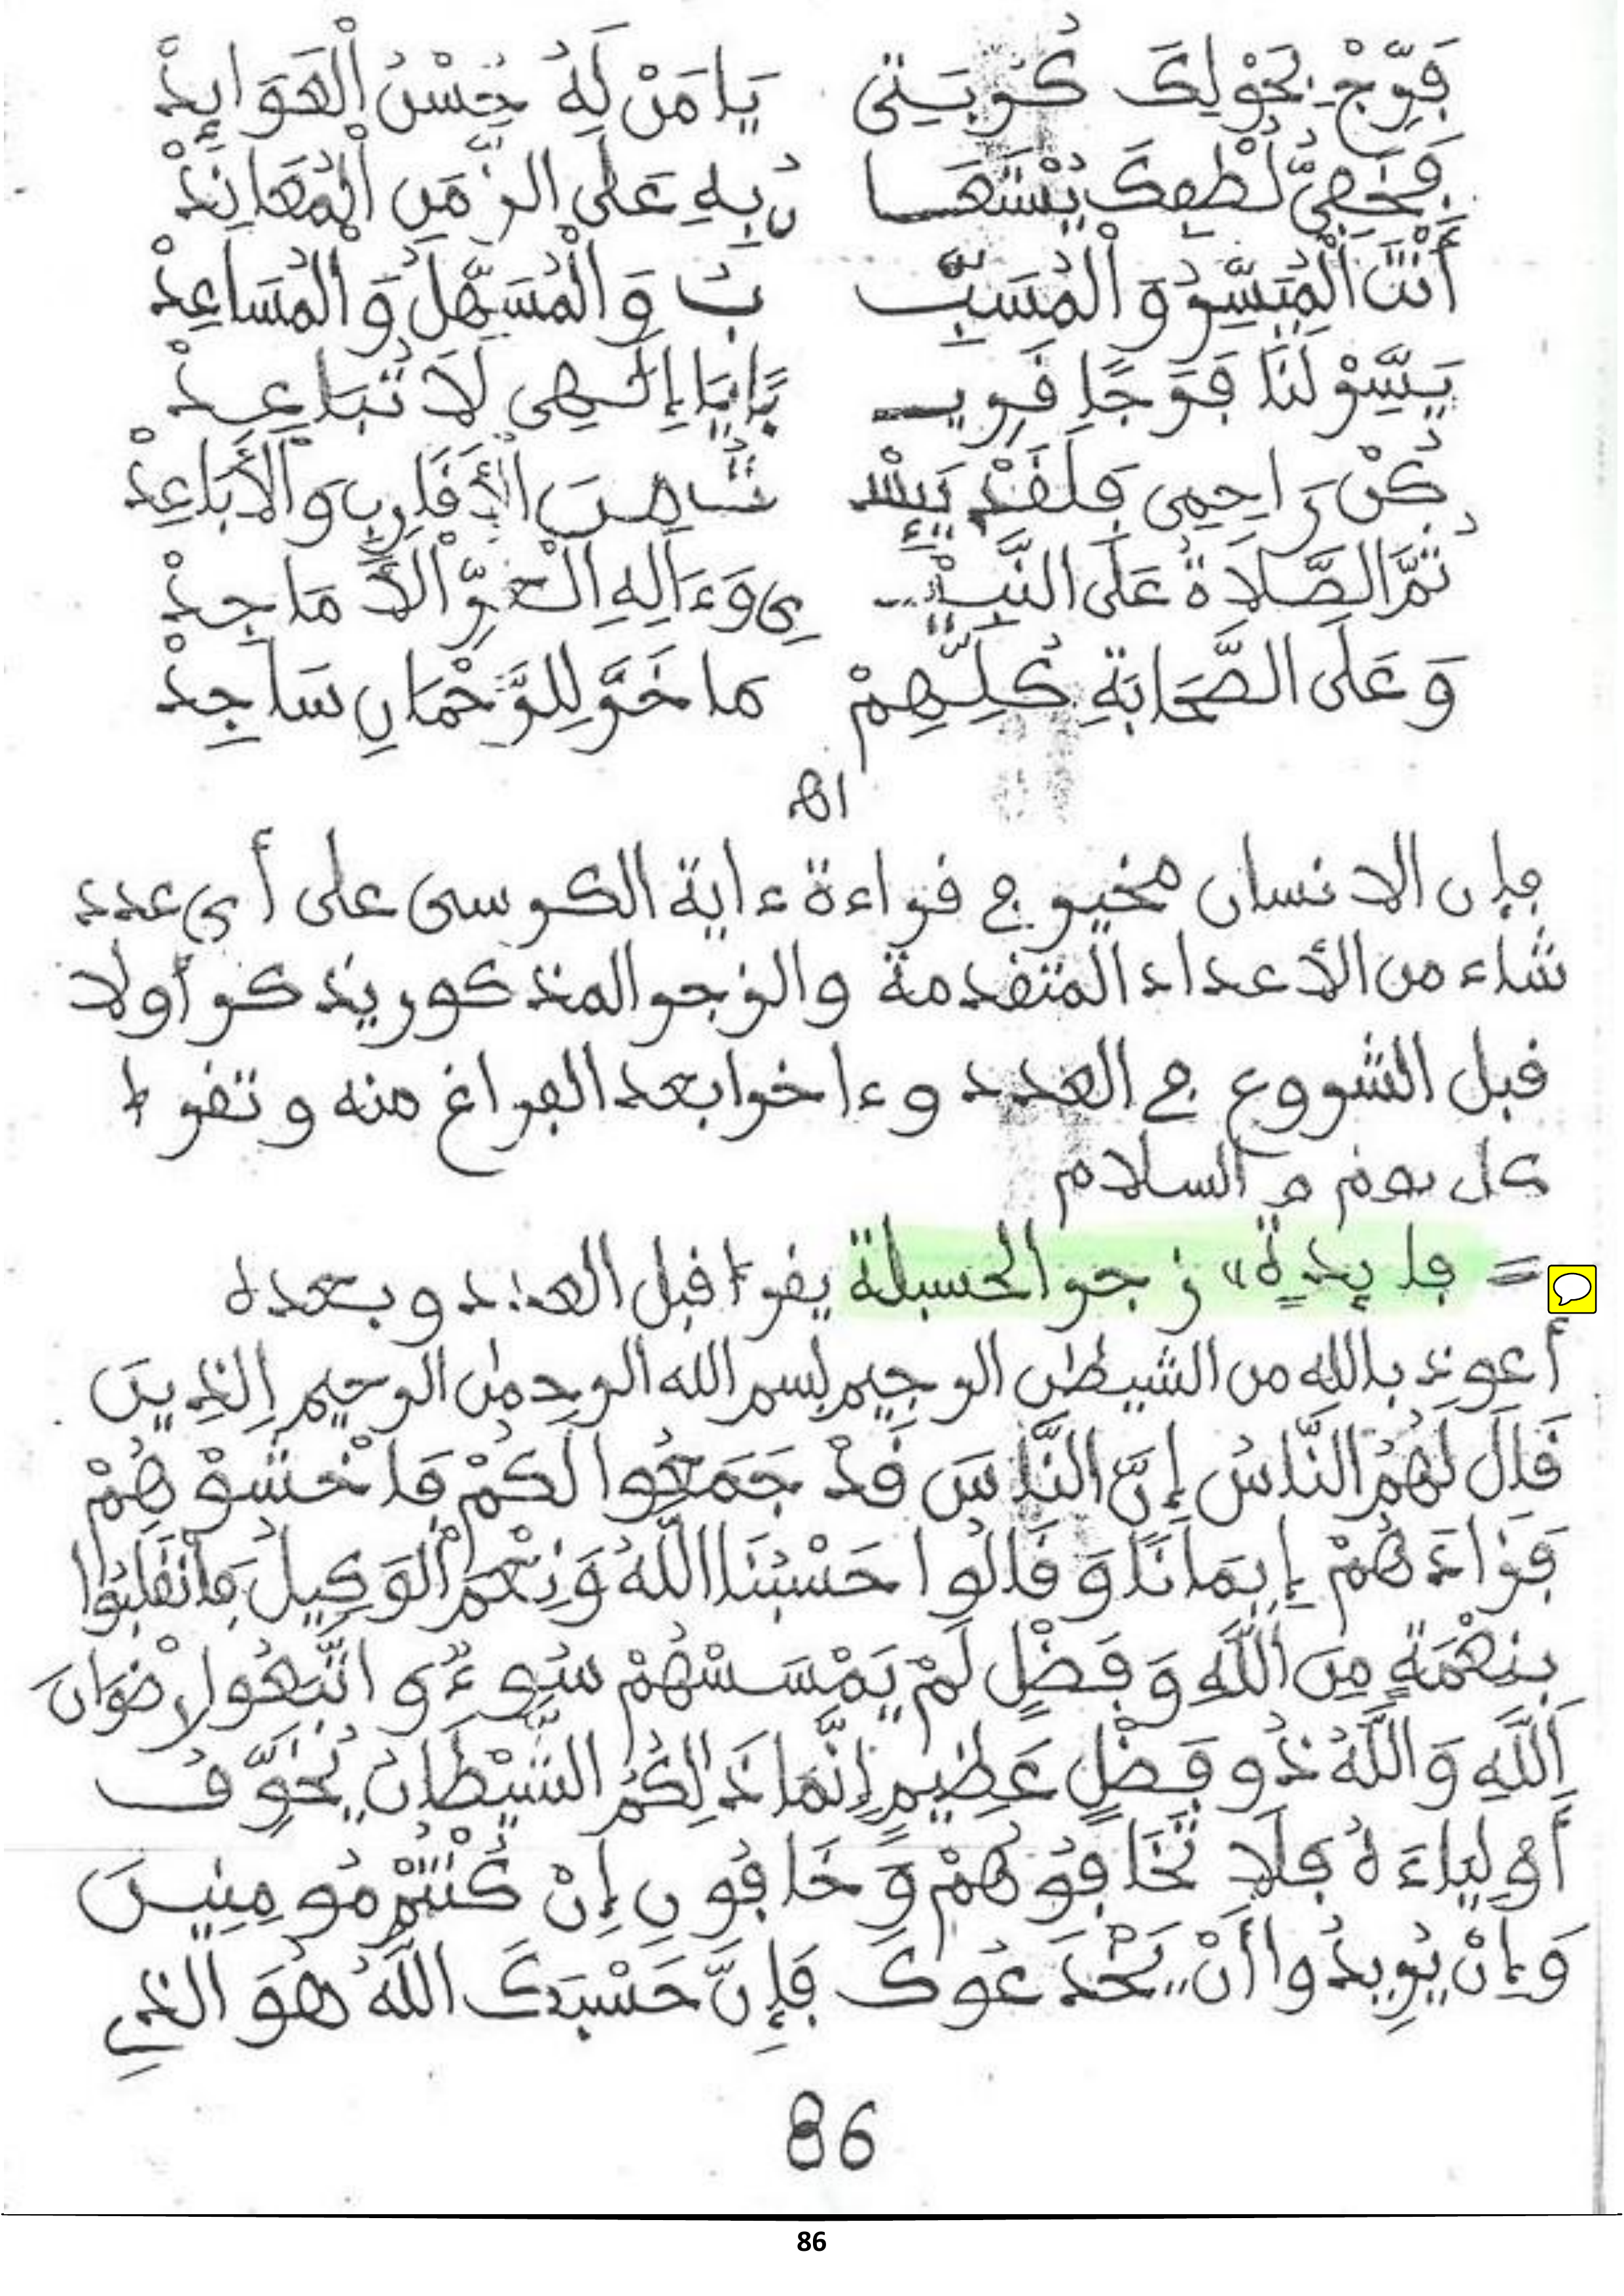 فَفَرِّجْ بِحَوْلِكَ كُرْبَتِي يَا مَنْ لَهُ حُسْنُ الْعَوَايِدْ
فَخَفِيُّ لُطْفِكَ يُسْتَعَا نُ بِهِ عَلَى الزَّمَنِ الْمُعَانِدْ
أَنْتَ الْمُيَسِّرُ وَالْمُسَبِّـ ـبُ وَالْمُسَهِّلُ وَالْمُسَاعِدْ
يَسِّرْ لَنَا فَرَجًا قَرِيـ ـبًا يَا إِلَهِي لَا تُبَاعِدْ
كُنْ رَاحِمِي فَلَقَدْ يَئِسْـ ـتُ مِنَ الْأَقَارِبِ وَالْأَبَاعِدْ
ثُمَّ الصَّلَاةُ عَلَى النَّبِيـ ـيِ وَءَالِهِ الْغُرِّ الْأَمَاجِدْ
وَعَلَى الصَّحَابَةِ كُلِّهِمْ مَا خَرَّ لِلرَّحْمَانِ سَاجِدْ
اهـ
فإن الانسان مخير في قراءة ءاية الكرسي على أي عدد
شاء من الأعداد المتقدمة والزجر المذكور يذكر أولا
قبل الشروع في العدد وءاخرا بعد الفراغ منه وتقرأ
كل يوم والسلام
= فايدة» زجر الحسبلة يقرأ قبل العدد وبعده
أعوذ بالله من الشيطن الرجيم بسم الله الرحمن الرحيم الذِينَ
قَالَ لَهُمُ النَّاسُ إِنَّ النَّاسَ قَدْ جَمَعُوا لَكُمْ فَاخْشَوْهُمْ
فَزَادَهُمْ إِيمَانًا وَقَالُوا حَسْبُنَا اللَّهُ وَنِعْمَ الْوَكِيلُ فَانْقَلَبُوا
بِنِعْمَةٍ مِنَ اللَّهِ وَفَضْلٍ لَمْ يَمْسَسْهُمْ سُوءٌ وَاتَّبَعُوا رِضْوَانَ
اللَّهِ وَاللَّهُ ذُو فَضْلٍ عَظِيمٍ إِنَّمَا ذَلِكُمُ الشَّيْطَانُ يُخَوِّفُ
أَوْلِيَاءَهُ فَلَا تَخَافُوهُمْ وَخَافُونِ إِنْ كُنْتُمْ مُومِنِينَ
وَإِنْ يُرِيدُوا أَنْ يَخْدَعُوكَ فَإِنَّ حَسْبَكَ اللَّهُ هُوَ الذِي
86
86